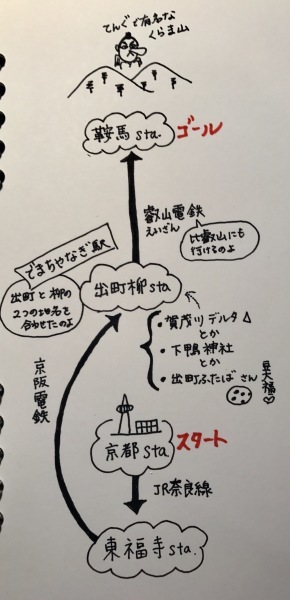 てんぐで有名な
くらま山
鞍馬 sta.
ゴール
叡山電鉄
えいざん
比叡山にも
行けるのよ
でまちやなぎ駅
出町と柳の
2つの地名を
合わせたのよ
出町柳 sta
・賀茂川デルタ△
とか
・下鴨神社
とか
・出町ふたばさん
豆大福♡
京阪電鉄
京都 sta
スタート
JR奈良線
東福寺 sta.